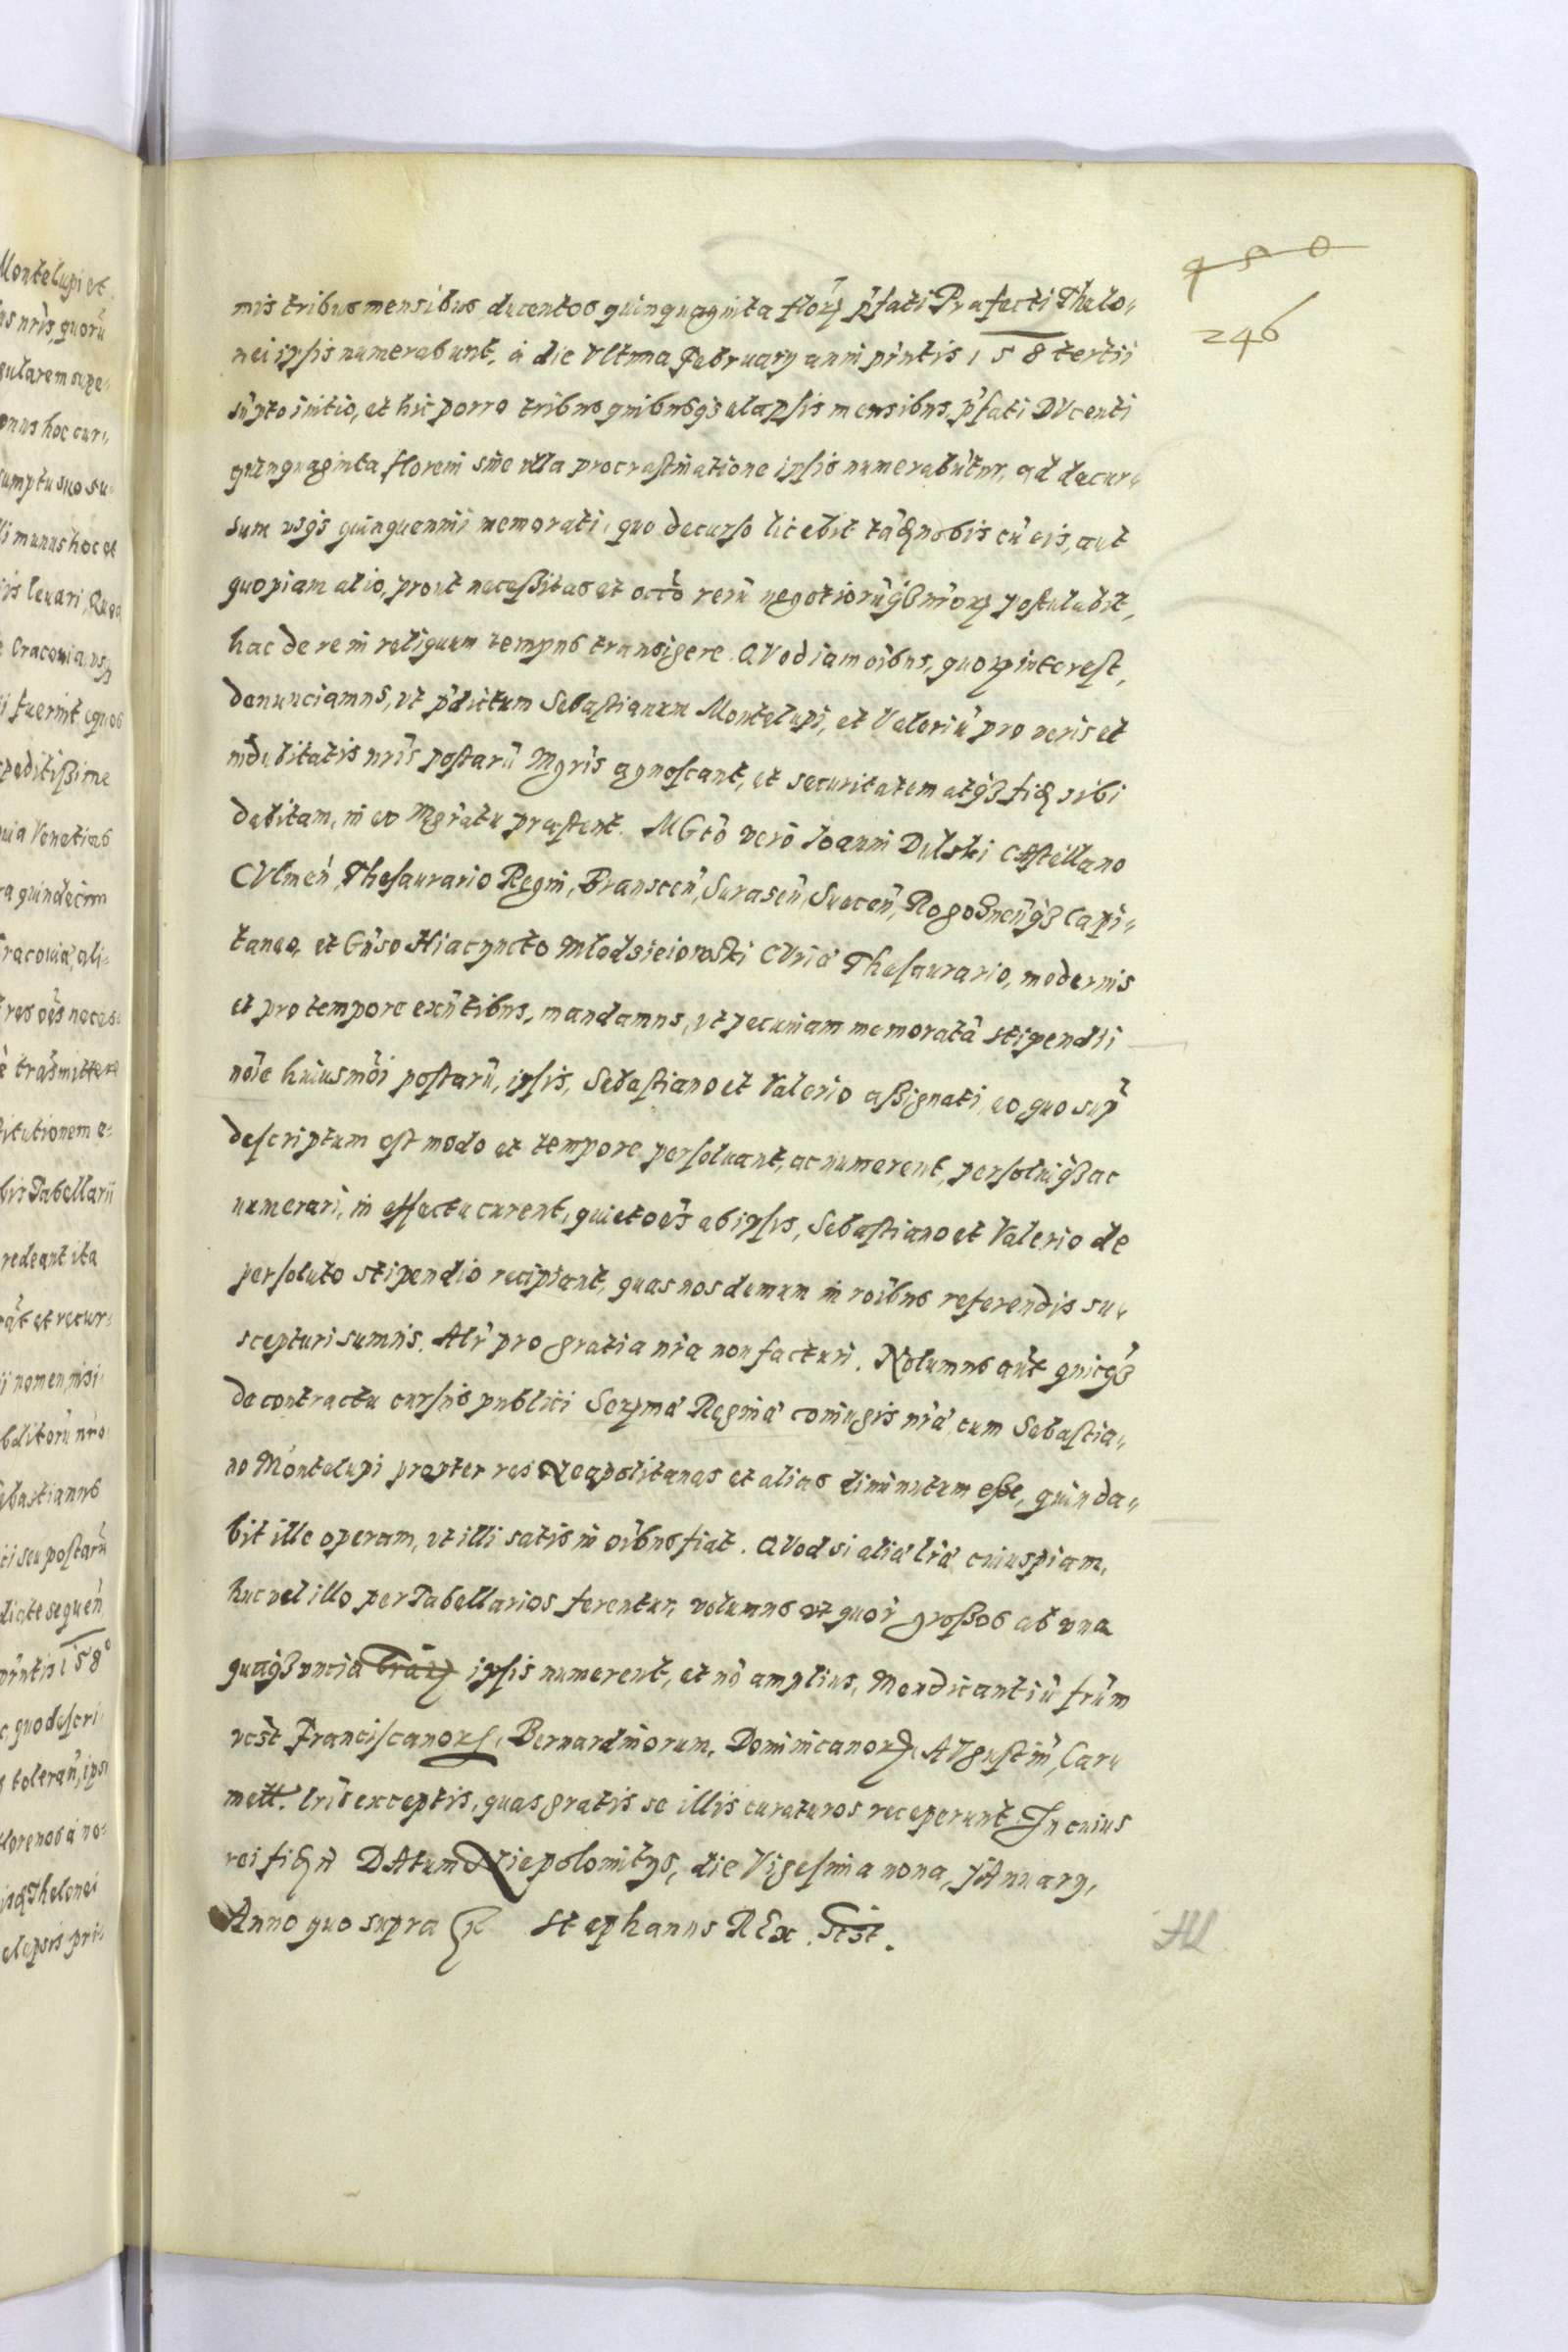 Montelupi et
nris, quorũ
gularem supe-
onus hoc cur-
sumptu suo su-
munus hoc et
leuari, Quod
Cracouia
fuerint equos
peditißime
Venetias
quindecim
Cracouia, ali-
res oẽs neces-
trãsmittere
stitutionem e-
Tabellarii
redeant ita
et recur-
nomen, nisi
bditorũ nro
Sebastianus
seu postarũ
sequeñ
pñtis 158°
quo descri-
toleran, ips
florenos a no-
Thelonei
elapsis pri-
450
246
mis tribus mensibus ducentos quinquaginta florꝝ p̃fati Præfecti Thelo-
nei ipsis numerabunt, à die Vltima February anni pr̃ntis 158 tertii
sũpto initio, et hic porro tribus quibusq̃ elapsis mensibus, p̃fati DVcenti
quinquaginta floreni sine vlla procrastinatione ipsis numerabũtur, ad decur-
sum vsq̃ quinquennii memorati, quo decurso licebit tã nobis cũ eis, aut
quopiam alio, prout neceßitas et occõ rerũ negotiorũq̃ nr̃orꝝ postulabit,
hac de re in reliquum tempus transigere. QVod iam oĩbus, quorꝝ interest,
denunciamus, vt p̃dictum Sebastianum Montelupi, et Valeriũ pro veris et
indubitatis nr̃is postarũ Mgr̃is agnoscant, et securitatem atq̃ fidẽ sibi
debitam, in eo Mgr̃atu præstent. MGcõ verõ Ioanni Dulski CAstellano
CVlmeñ, Thesaurario Regni, Branscen̄, Surasen̄, Suecen̄, Rogoznen̄q̃ Capi-
taneo, et Gñso Hiacyncto Mlodzieiowski CVriæ Thesaurario, modernis
et pro tempore exñtibus, mandamus, vt pecuniam memoratã stipendii
nõie huiusmõi postarũ, ipsis, Sebastiano et Valerio aßignati, eo quo sup̃
descriptum est modo et tempore persoluant, ac numerent, persoluiq̃ ac
numerari, in effectu curent, quietões ab ipsis, Sebastiano et Valerio de
persoluto stipendio recipiant, quas nos demum in roĩbus referendis su-
scepturi sumus. Alr̃ pro gratia nr̃a non facturi. Nolumus aũt quicq̃
de contractu cursus publici Serꝝmæ Reginæ coniugis nr̃æ cum Sebastia-
no Montelupi propter res Neapolitanas et alias diminutum eße, quin da-
bit ille operam, vt illi satis in oĩbus fiat. QVod si aliæ lr̃æ cuiuspiam,
huc vel illo per Tabellarios ferentur, volumus vt quor̃ großos ab vna
quaq̃ vncia lr̃arꝝ ipsis numerent, et nõ amplius, Mendicantiũ fr̃um
vc̃zt Franciscanorꝝ, Bernardinorum, Dominicanorꝝ, AVgustin̄, Car-
melt. lr̃is exceptis, quas gratis se illis curaturos receperunt. In cuius
rei fidẽ DAtum Niepolomitijs, die Vigesima nona, JAnuary,
Anno quo supra Stephanus REx. Sc̃st.